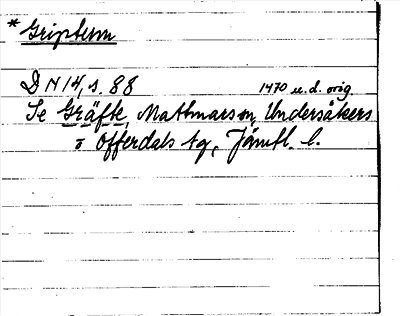 * Gripterm
DN 14, s. 88 1470 u. d. orig.
Se Gräfte, Mattmars sn, Undersåkers
o Offerdals tg, Jämtl. l.